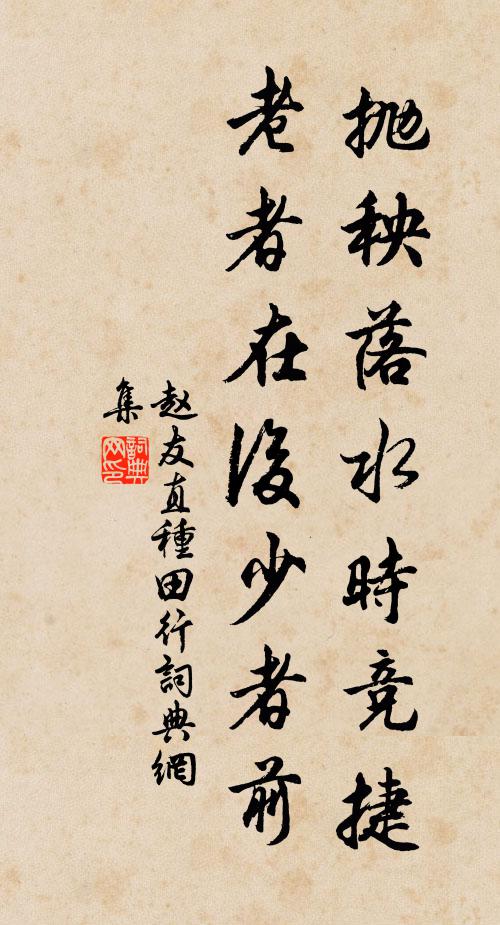 抛秧落水時竞捷
老者在後少者前
赵友直種田行詞典網
集
詞典
网印